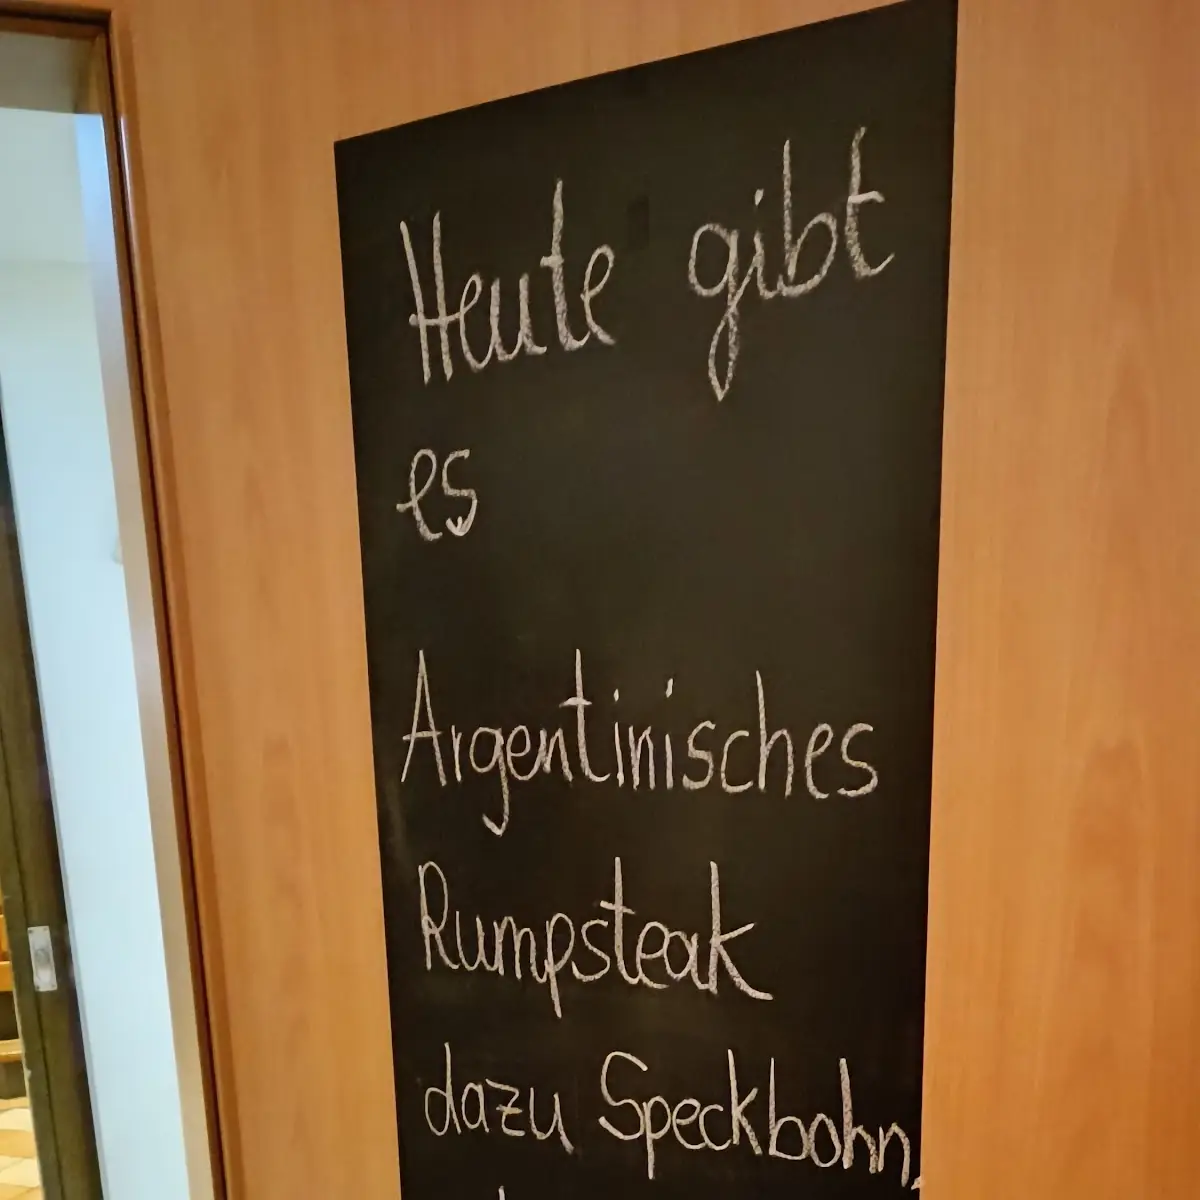 Heute gibt
es
Argentinisches
Rumpsteak
dazu Speckbohn.